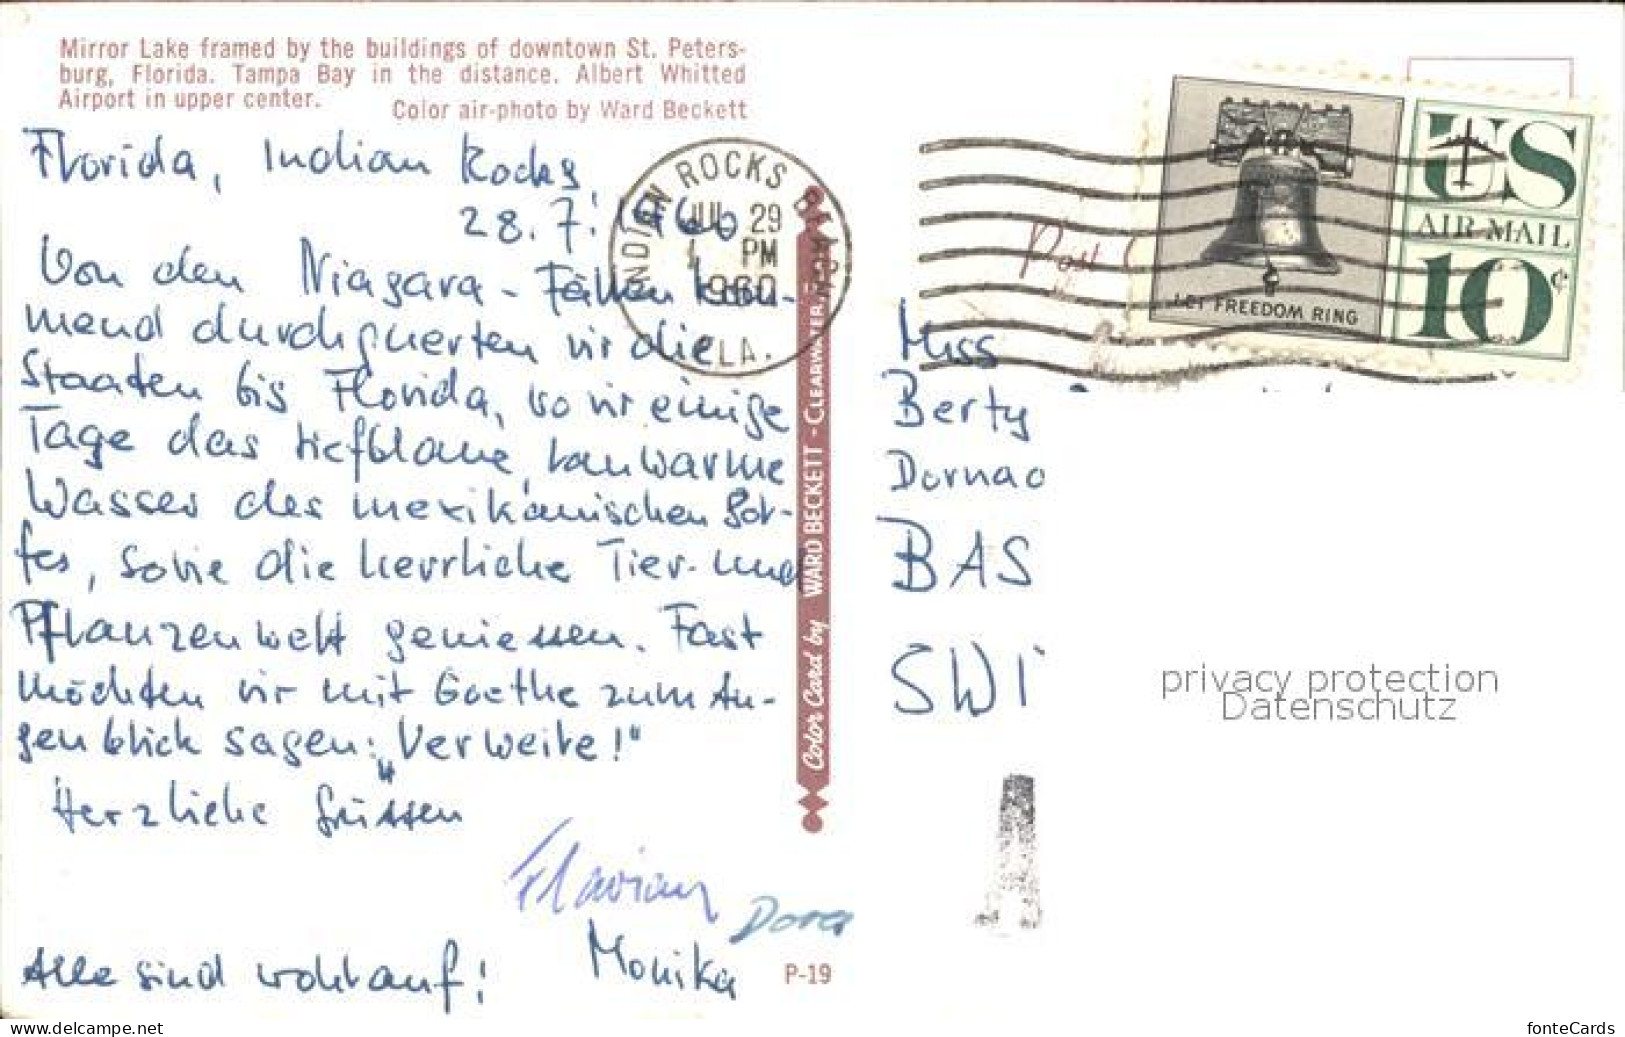 Mirror Lake framed by the buildings of downtown St. Peters-
burg, Florida. Tampa Bay in the distance. Albert Whitted
Airport in upper center.
Color air-photo by Ward Beckett
Florida, Indian Rocks,
28. 7. 1960
Von den Niagara-Fällen kom-
mend durchquerten wir die
Staaten bis Florida, wo wir einige
Tage das tiefblaue, lauwarme
Wasser des mexikanischen Gol-
fes, sowie die herrliche Tier- und
Pflanzenwelt geniessen. Fast
möchten wir mit Goethe zum Au-
genblick sagen: „Verweile!"
Herzliche Grüssen
Flavian
Dora
Monika
Alle sind wohlauf!
P-19
Color Card by WARD BECKETT - CLEARWATER
INDIAN ROCKS
JUL 29
PM
1960
FLA.
LET FREEDOM RING
US
AIR MAIL
10¢
Miss
Berty
Dornac
BAS
SWI
privacy protection
Datenschutz
www.delcampe.net
fonteCards